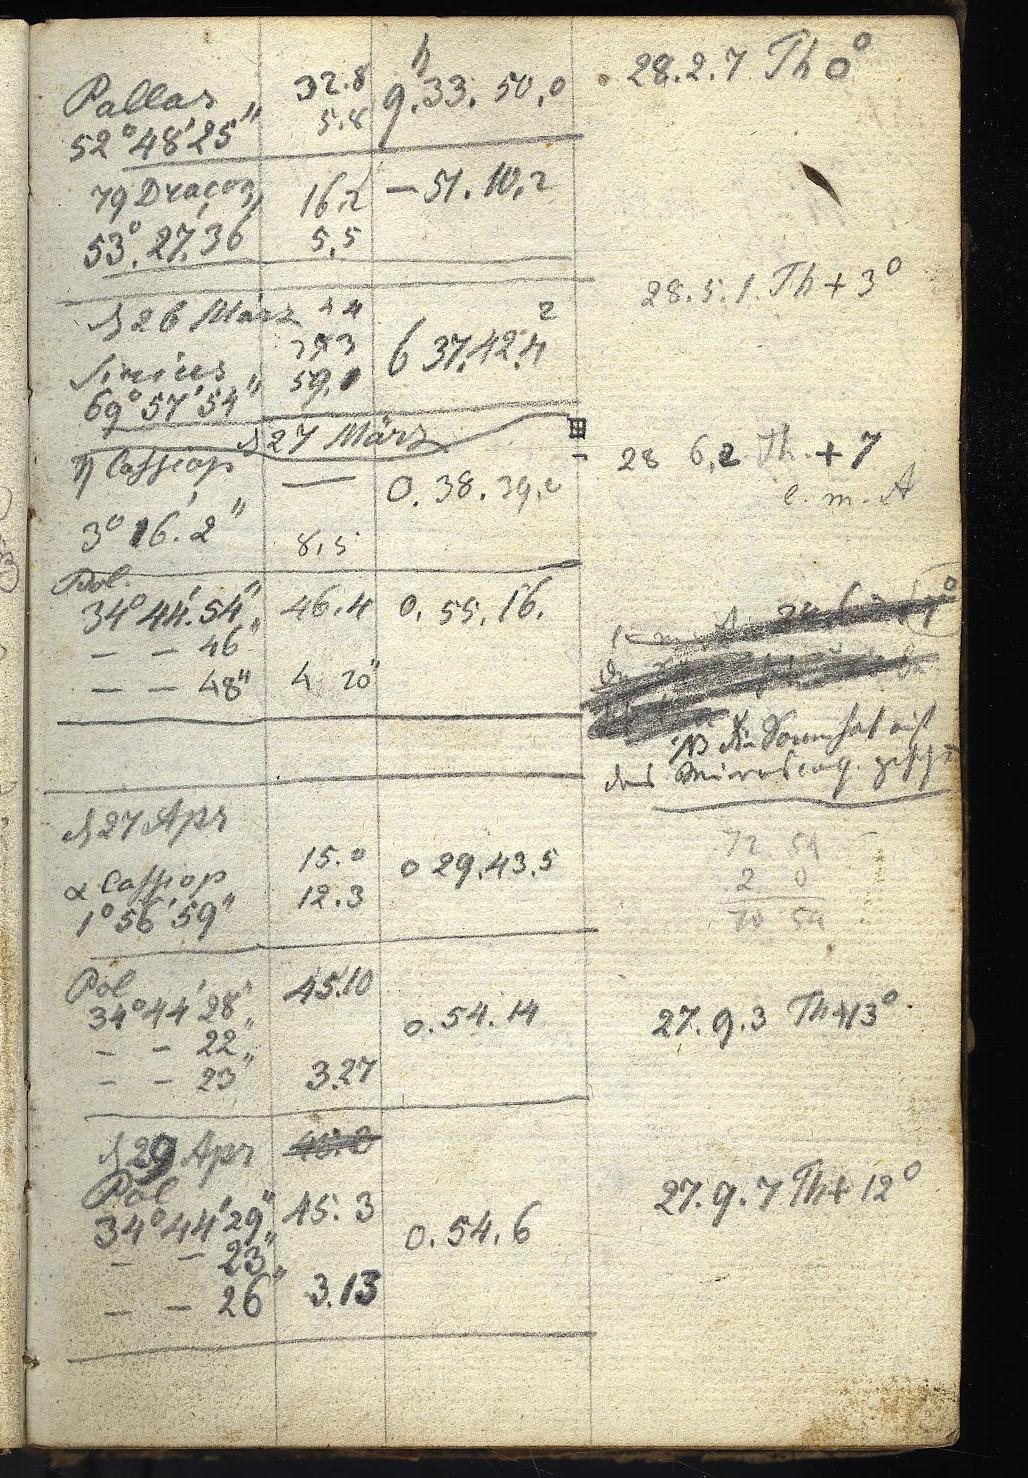 Pallas 32.8 9.h33. 50,0 28.2.7 Th 0°
52° 48' 25" 5.8
79 Dracon 16,2 — 51. 10,2
53°. 27,' 36 5,5
28.5.1. Th + 3°
26 März
Sirius 59,1 6 37.42.4
69° 57' 54"
27 März
η Cassiop — 0. 38. 39,2 28 6,2 Th. + 7
3° 16.' 2" 8,5
Pol.
34° 44'. 54" 46.4 0. 55. 16.
— — 46"
— — 48" 4 20"
NB die Sonne hat auf
das Microscop.
27 Apr
α Cassiop 15.0 0 29.43.5
1° 56' 59" 12.3
72 54
2 0
70 54
Pol 45.10
34° 44' 28" 0.54.14 27.9.3 Th+13°.
— — 22"
— — 23" 3.27
29 Apr
Pol
34° 44' 29" 45.3 0.54.6 27.9.7 Th+ 12°
— — 23"
— — 26" 3.13